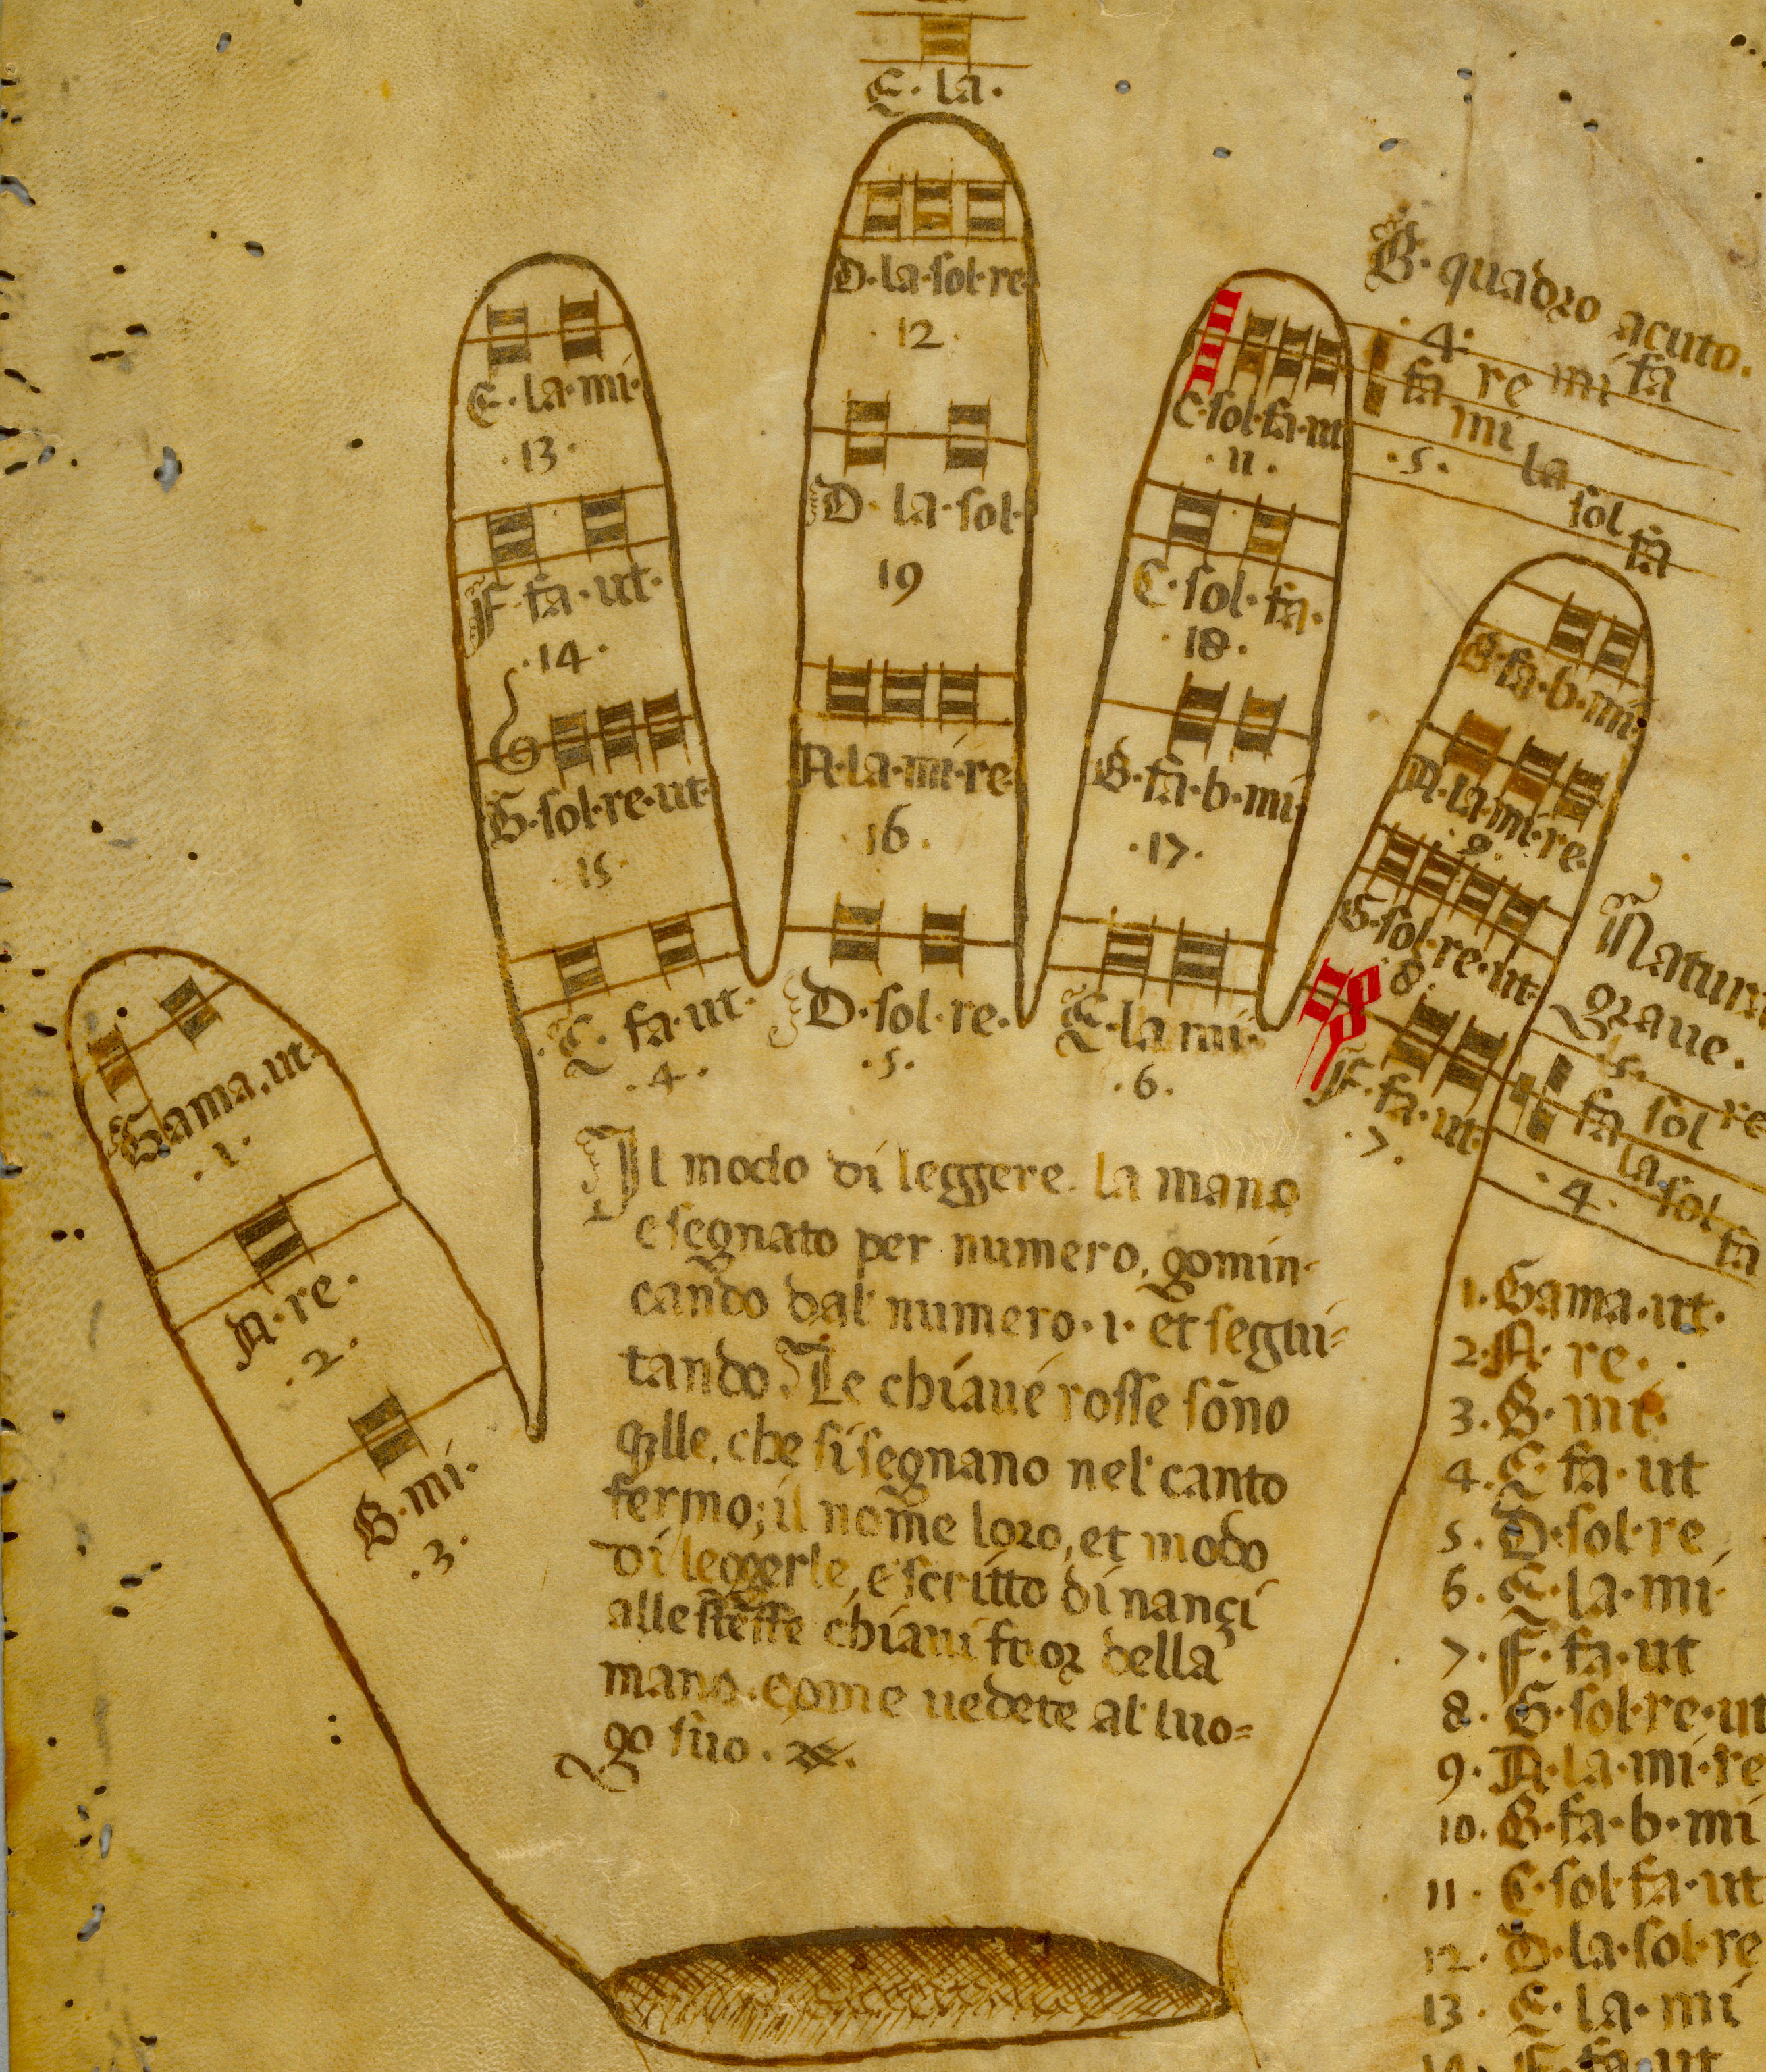 E. la.
D·la·sol·re
·12·
D· la·sol·
19
A·la·mi·re·
·16·
D·sol·re·
·5·
E·la·mi·
·13·
F·fa·ut·
·14·
G·sol·re·ut·
15·
C· fa·ut·
·4·
C·sol·fa·ut
·11·
C·sol·fa·
·18·
B·fa·b·mi·
·17·
E·la mi·
·6·
B·fa·b·mi·
A·la·mi·re·
·9·
G·sol·re·ut·
·8·
F·fa·ut·
·7·
Gama.ut·
·1·
A·re·
·2·
B·mi·
·3·
B·quadro acuto.
·4·
fa re mi fa
mi
·5· la
sol
fa
Natura
graue.
·5·
fa sol re
la
·4· sol
fa
Il modo di leggere la mano
e segnato per numero, gomin-
cando dal numero·1· et segui=
tando. Le chiaue rosse sõno
qlle, che si segnano nel canto
fermo; il nome loro, et modo
di leggerle, e scritto di nançi
alle stesse chiaui fuor della
mano. come uedete al luo=
go suo.
1. Gama·ut·
2·A· re·
3·B· mi·
4·C fa·ut
5·D·sol·re
6 E·la·mi·
7·F·fa·ut
8·G·sol·re·ut
9·A·la·mi·re
10·B·fa·b·mi
11·C·sol·fa·ut
12·D·la·sol·re
13·E·la·mi
14·F·fa·ut